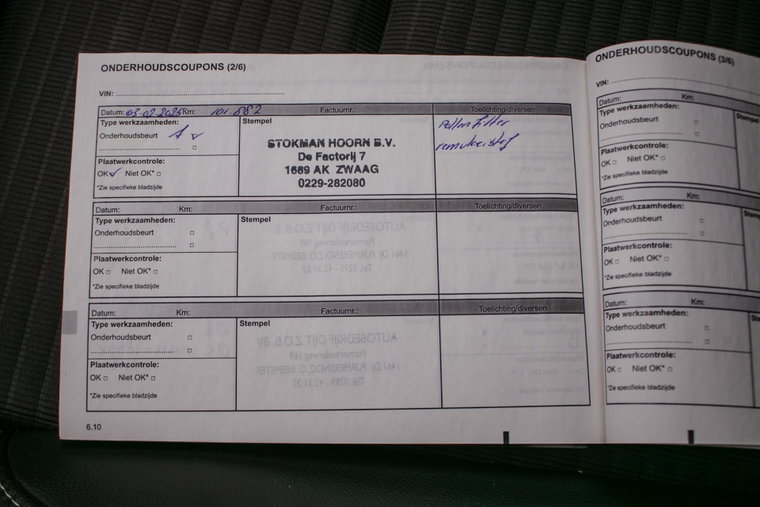 ONDERHOUDSCOUPONS (2/6)
VIN:
Datum: 03-02-2025 Km: 101.882 Factuurnr.: Toelichting/diversen
Type werkzaamheden:
Onderhoudsbeurt
Plaatwerkcontrole:
OK Niet OK*
*Zie specifieke bladzijde
Stempel
STOKMAN HOORN B.V.
De Factorij 7
1689 AK ZWAAG
0229-282080
Pollenfilter
remvloeistof
Datum: Km: Factuurnr.: Toelichting/diversen
Type werkzaamheden:
Onderhoudsbeurt
Plaatwerkcontrole:
OK Niet OK*
*Zie specifieke bladzijde
Stempel
Datum: Km: Factuurnr.: Toelichting/diversen
Type werkzaamheden:
Onderhoudsbeurt
Plaatwerkcontrole:
OK Niet OK*
*Zie specifieke bladzijde
Stempel
6.10
ONDERHOUDSCOUPONS (3/6)
VIN:
Datum: Km:
Type werkzaamheden:
Onderhoudsbeurt
Plaatwerkcontrole:
OK Niet OK*
*Zie specifieke bladzijde
Datum: Km:
Type werkzaamheden:
Onderhoudsbeurt
Plaatwerkcontrole:
OK Niet OK*
*Zie specifieke bladzijde
Datum: Km:
Type werkzaamheden:
Onderhoudsbeurt
Plaatwerkcontrole:
OK Niet OK*
*Zie specifieke bladzijde